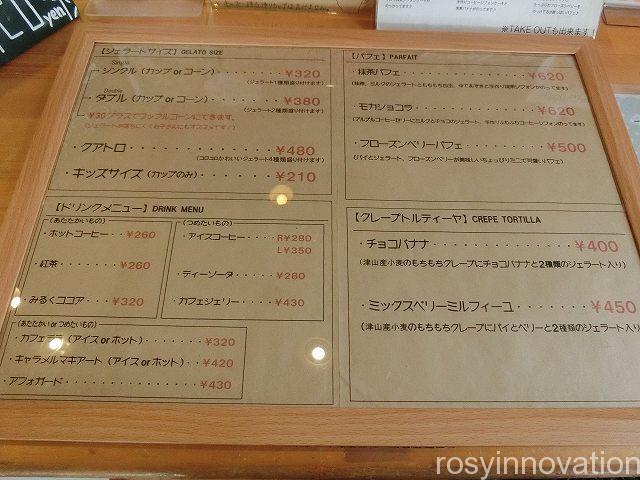 yen
※TAKE OUTも出来ます
【ジェラートサイズ】GELATO SIZE
Single
・シングル（カップ or コーン）・・・・・・・¥320
（ジェラート1種類盛り付けます）
Double
・ダブル（カップ or コーン）・・・・・・・¥380
（ジェラート2種類盛り付けます）
・クアトロ・・・・・・・・・・・・・・¥480
（コロコロかわいいジェラート4種類盛り付けます）
・キッズサイズ（カップのみ）・・・¥210
【ドリンクメニュー】DRINK MENU
（あたたかいもの）
・ホットコーヒー・・¥260
・紅茶・・・・¥260
・みるくココア・・・¥320
（つめたいもの）
・アイスコーヒー・・・・R¥280
L¥350
・ティーソーダ・・・・¥280
・カフェジェリー・・・¥430
（あたたかい or つめたいもの）
・カフェラテ（アイス or ホット）・・・・・・¥320
・キャラメルマキアート（アイス or ホット）・・¥420
・アフォガード・・・・・・・・・・・・・・¥430
【パフェ】PARFAIT
・抹茶パフェ・・・・・・・・・・・・・¥620
・モカショコラ・・・・・・・・・・・・¥620
・フローズンベリーパフェ・・・・・・・¥500
（パイとジェラート、フローズンベリーが美味しいちょっぴりミニで可愛いパフェ）
【クレープトルティーヤ】CREPE TORTILLA
・チョコバナナ・・・・・・・・・・・・・・¥400
（津山産小麦のもちもちクレープにチョコバナナと2種類のジェラート入り）
・ミックスベリーミルフィーユ・・・・・・・¥450
（津山産小麦のもちもちクレープにパイとベリーと2種類のジェラート入り
rosyinnovation